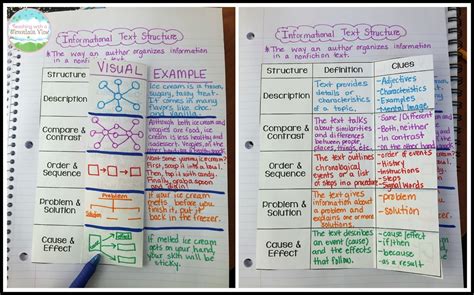 Teaching with a
Mountain View
Informational Text Structure
The way an author organizes information
in a nonfiction text.
Structure
VISUAL
EXAMPLE
Description
Ice cream is a frozen,
sugary, tasty treat.
It comes in many
flavors like choc.
and vanilla.
Compare &
Contrast
Although both ice cream
and veggies are food, ice
cream is less healthy and
Order &
Sequence
Want some yummy ice cream?
First, scoop it into a bowl.
Then, top with candy.
Finally, grab a spoon
and
Problem &
Solution
Problem
Solution
If your ice cream
melts before you
finish it, put it
back in the freezer.
Cause &
Effect
If melted ice cream
gets on your hand,
your skin will be
sticky.
Informational Text Structure
The way an author organizes information
in a nonfiction text.
Structure
Definition
Clues
Description
Text provides
details or
characteristics of a
topic.
-Adjectives
-Characteristics
-Examples
-Mental Image
Compare &
Contrast
The text talks
about similarities
and differences
between people,
places, things, etc.
-Same / Different
-Both, neither
-In contrast
-On the other
Order &
Sequence
The text outlines
chronological
events or a list
of steps in a procedure
-order of events
-History
-Instructions
-steps
-Signal Words
Problem &
Solution
The text gives
information about
a problem and
explains one or more
solutions.
-problem
-solution
Cause &
Effect
The text describes
an event (cause) and
the effects that
follow.
-cause/effect
-if/then
-because
-as a result